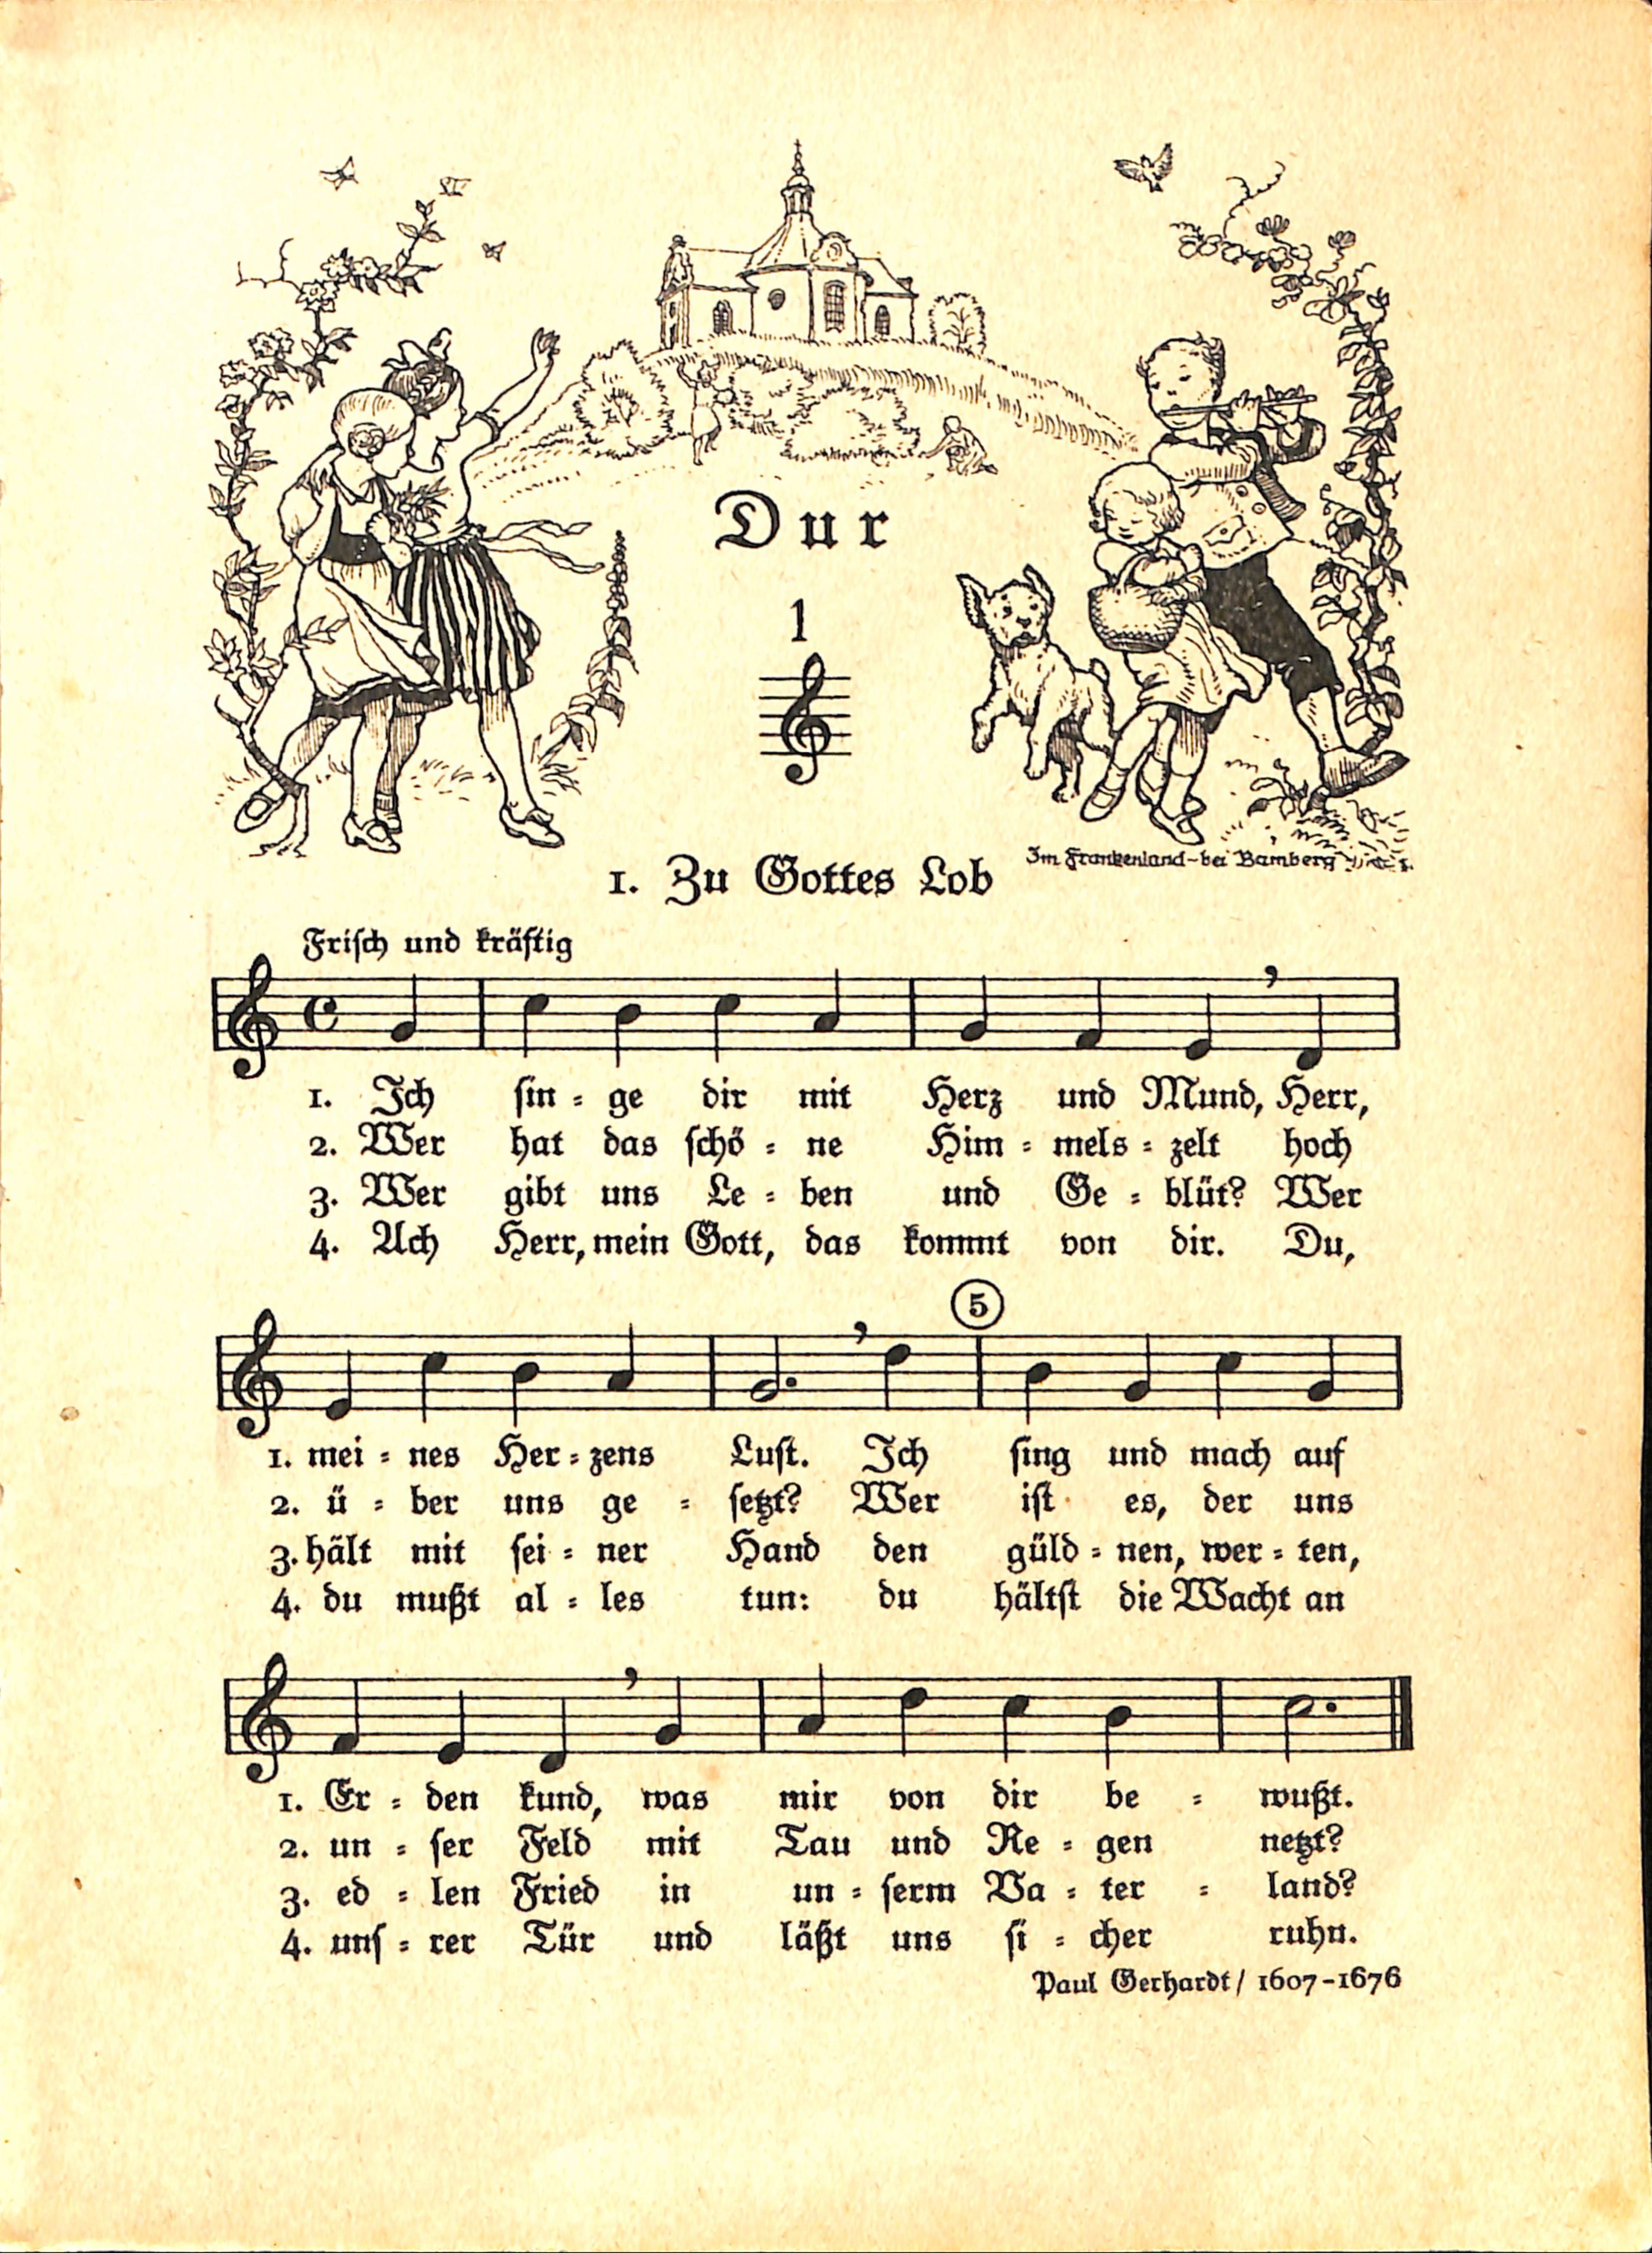 Dur
1
Im Frankenland-bei Bamberg
1. Zu Gottes Lob
Frisch und kräftig
1. Ich sin = ge dir mit Herz und Mund, Herr,
2. Wer hat das schö = ne Him = mels = zelt hoch
3. Wer gibt uns Le = ben und Ge = blüt? Wer
4. Ach Herr, mein Gott, das kommt von dir. Du,
5
1. mei = nes Her = zens Lust. Ich sing und mach auf
2. ü = ber uns ge = setzt? Wer ist es, der uns
3. hält mit sei = ner Hand den güld = nen, wer = ten,
4. du mußt al = les tun: du hältst die Wacht an
1. Er = den kund, was mir von dir be = wußt.
2. un = ser Feld mit Tau und Re = gen netzt?
3. ed = len Fried in un = serm Va = ter = land?
4. uns = rer Tür und läßt uns si = cher ruhn.
Paul Gerhardt / 1607-1676